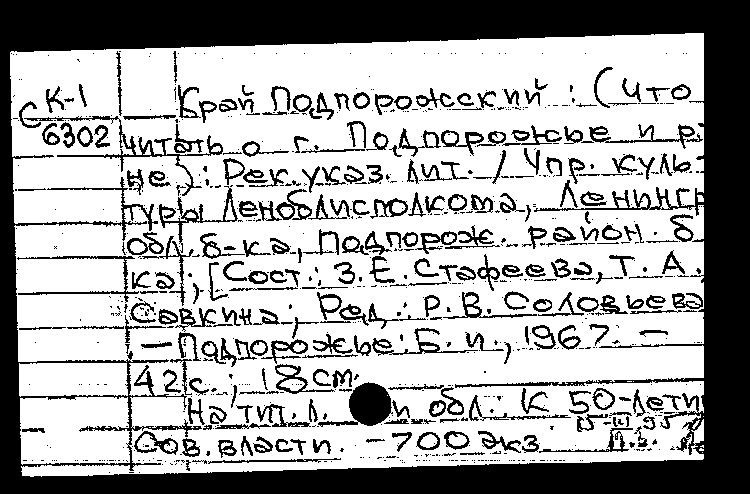 С К-1
6302
Край Подпорожский : (Что
читать о г. Подпорожье и р
не) : Рек. указ. лит. / Упр. куль-
туры Леноблисполкома, Ленингр
обл. б-ка, Подпорож. район. б
ка ; [Сост.: З. Е. Стафеева, Т. А.
Савкина ; Ред.: Р. В. Соловьева
— Подпорожье : Б. и., 1967. —
42 с. ; 18 см.
На тит. л. и обл.: К 50-лети
Сов. власти. — 700 экз.
П. в.